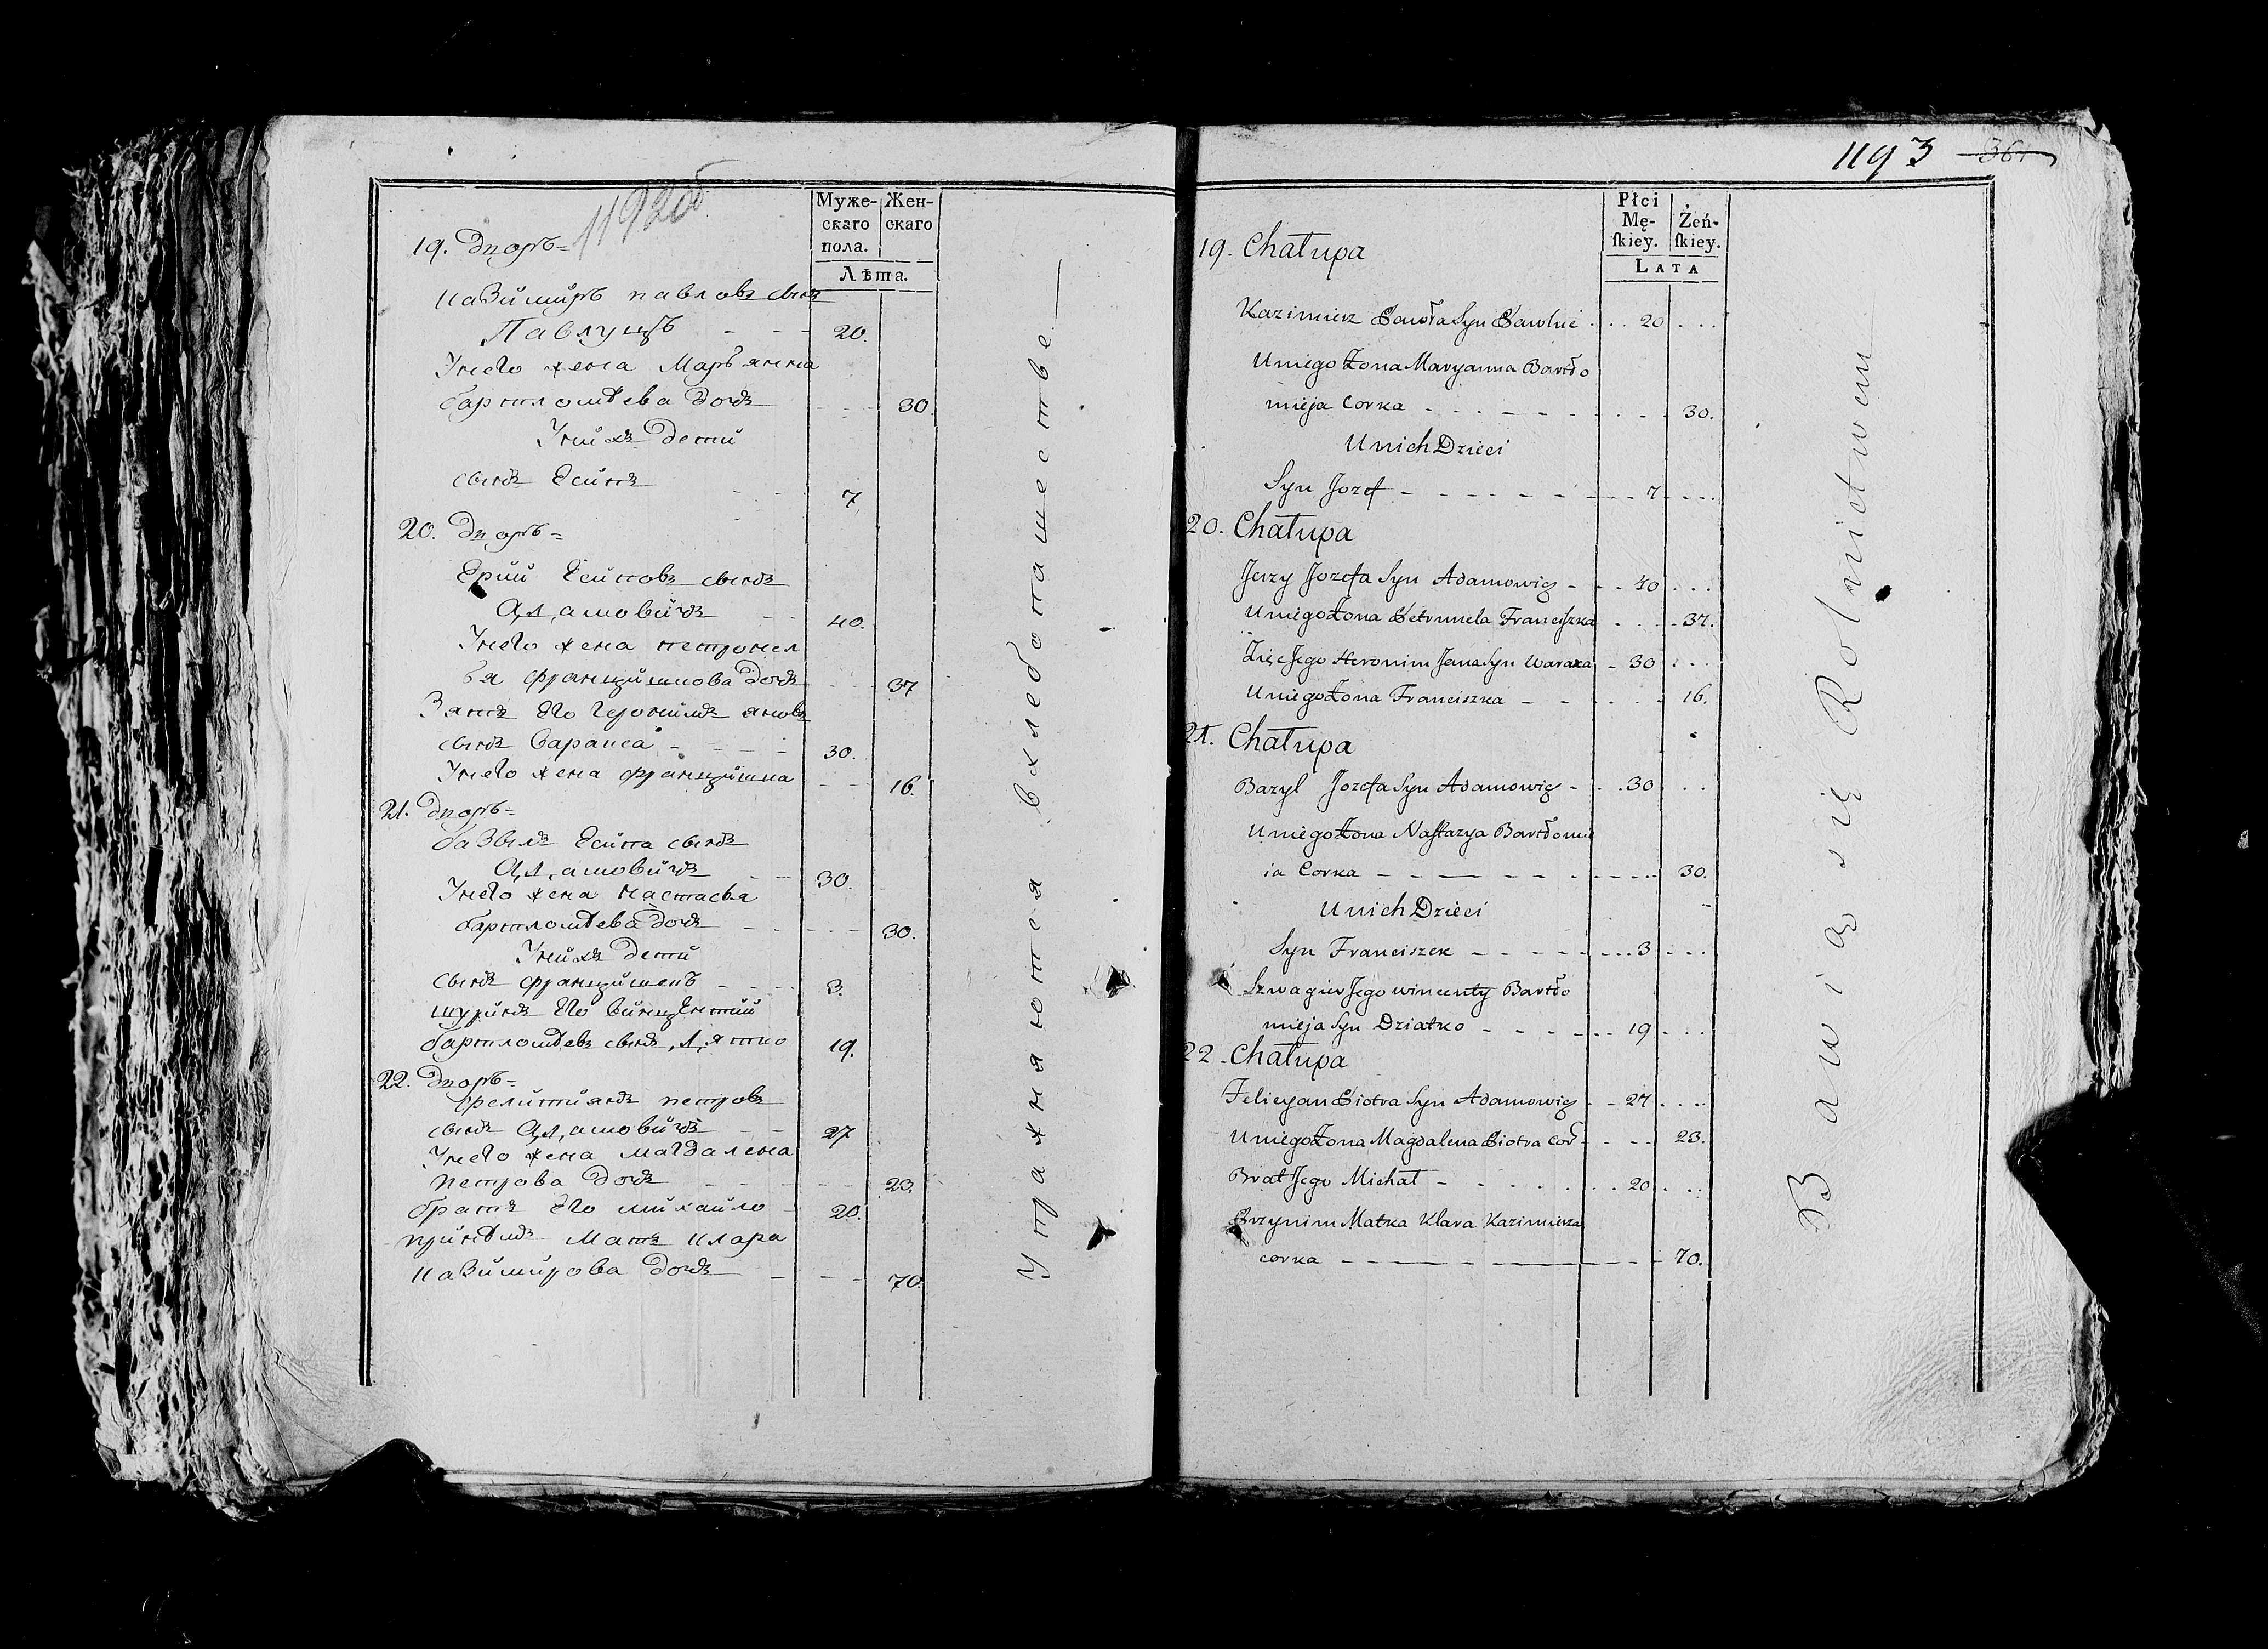 1192об.
Муже-
скаго
пола.
Жен-
скаго
Лѣта.
19. Дворъ=
Казимиръ павловъ сынъ
Павлуцъ - - - 20.
Унего жена Марьянна
бартломѣева дочь - - - 30.
Унихъ дети
сынъ Есипъ - - 7,
20. Дворъ=
Ерий Есиповъ сынъ
Адамовичъ - - 40.
Унего жена петронел
ья францишкова дочь - - 37
Зять Его Героним яновъ
сынъ Варакса - - - - 30.
Унего жена францишка - - 16.
21. Дворъ=
базыль Есипа сынъ
Адамовичъ - - 30.
Унего жена настасья
бартломѣева дочь - - - - - 30.
Унихъ дети
сынъ францишекъ - - - 3.
шуринъ Его винцентий
бартломѣевъ сынъ дятко 19.
22. Дворъ=
фелитиянъ петровъ
сынъ Адамовичъ - - 27
Унего жена магдалена
петрова дочь - - - - - 23.
братъ Его михайло - 20.
принѣмъ Мать клара
казимирова дочь - - - 70.
Упражняются вхлебопашестве.
1193 361
Płci
Mę-
ſkiey.
Żeń-
ſkiey.
LATA
19. Chałupa
Kazimierz Pawła Syn Pawluć . . . 20 . . .
Uniego Żona Maryanna Bartło
mieja Corka - - - - - - - - - 30.
Unich Dzieci
Syn Jozef - - - - - - - - - 7 - . . .
20. Chałupa
Jerzy Jozefa Syn Adamowicz - - . 40 . . .
Uniego Żona Petrunela Franciſzka . . . . 37.
Zięć Jego Heronim Jana Syn Waraxa - 30 . . .
Uniego Żona Franciszka - - . . . . 16.
21. Chałupa
Bazyl Jozefa Syn Adamowicz - . . 30 . . .
Uniego Żona Naſtazya Bartłomie
ia Corka - - - - - - - - - - . . 30.
Unich Dzieci
Syn Franciszek - - - - - - . . . 3 - . . .
Szwagier Jego Wincenty Bartło
mieja Syn Dziatko - - - - - . . . 19 . . .
22. Chałupa
Felicyan Piotra Syn Adamowicz - - 27 . . .
Uniego Żona Magdalena Piotra Cor - - - . . 23.
Brat Jego Michał - . . . . . . . 20 . . .
Przynim Matka Klara Kazimierza
corka - - - - - - - - - - 70.
Bawią się Rolnictwem